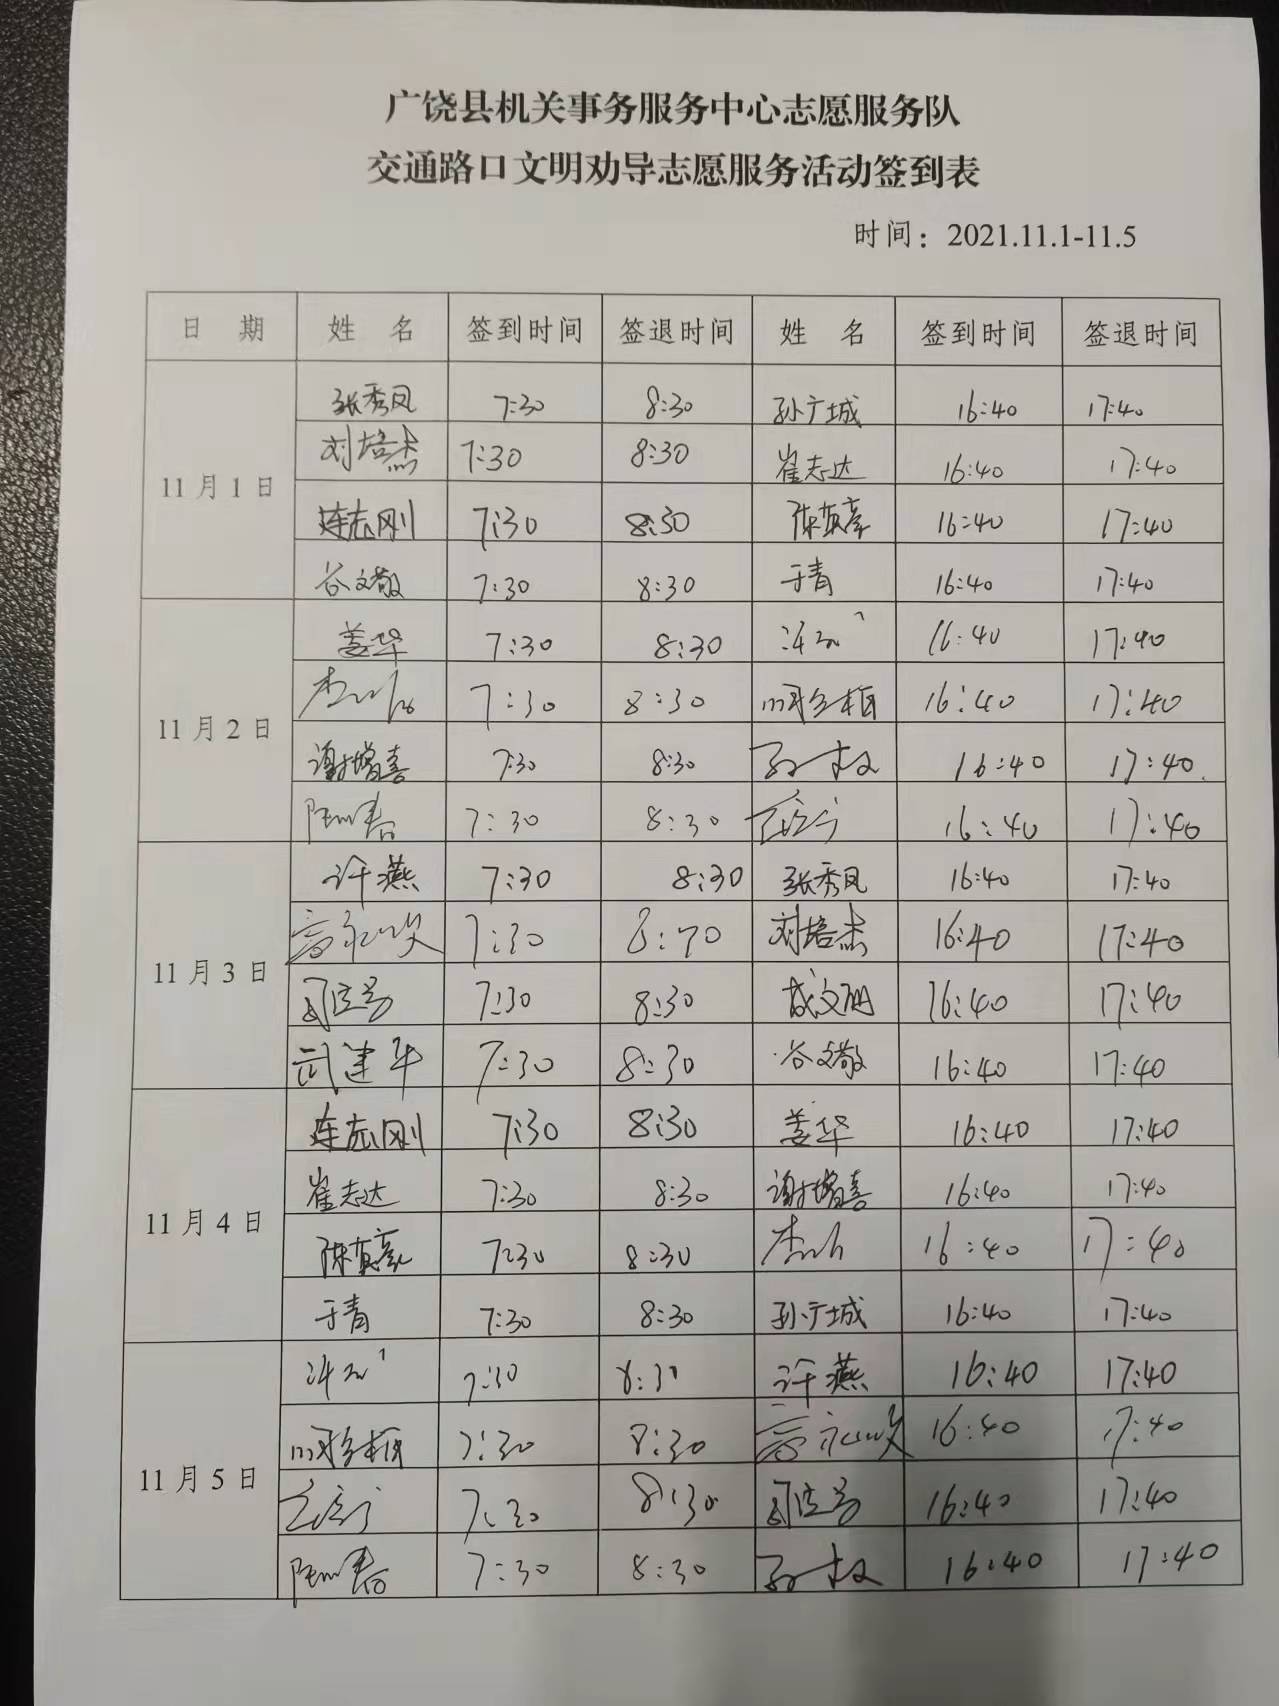 广饶县机关事务服务中心志愿服务队
交通路口文明劝导志愿服务活动签到表
时间：2021.11.1-11.5
日 期 姓 名 签到时间 签退时间 姓 名 签到时间 签退时间
张秀凤 7:30 8:30 孙广城 16:40 17:40
刘培杰 7:30 8:30 崔志达 16:40 17:40
11月1日
连志刚 7:30 8:30 陈英豪 16:40 17:40
谷文敬 7:30 8:30 于青 16:40 17:40
姜华 7:30 8:30 16:40 17:40
7:30 8:30 16:40 17:40
11月2日
谢增喜 7:30 8:30 16:40 17:40
7:30 8:30 16:40 17:40
许燕 7:30 8:30 张秀凤 16:40 17:40
7:30 刘培杰 16:40 17:40
11月3日
7:30 8:30 成文明 16:40 17:40
武建华 7:30 8:30 谷文敬 16:40 17:40
连志刚 7:30 8:30 姜华 16:40 17:40
崔志达 7:30 8:30 谢增喜 16:40 17:40
11月4日
陈英豪 7:30 8:30 16:40 17:40
于青 7:30 8:30 孙广城 16:40 17:40
7:30 8:30 许燕 16:40 17:40
7:30 8:30 16:40 17:40
11月5日
7:30 8:30 16:40 17:40
7:30 8:30 16:40 17:40